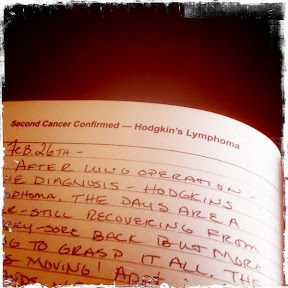 Second Cancer Confirmed — Hodgkin's Lymphoma
FEB. 26TH -
AFTER LUNG OPERATION -
HE DIAGNOSIS - HODGKINS
PHOMA. THE DAYS ARE A
R - STILL RECOVERING FROM
ERY - SORE BACK BUT MORE
G TO GRASP IT ALL. THE
MOVING!